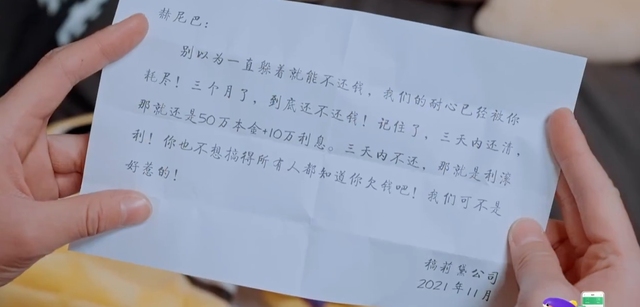 赫尼巴：
别以为一直躲着就能不还钱，我们的耐心已经被你
耗尽！三个月了，到底还不还钱！记住了，三天内还清，
那就还是50万本金+10万利息。三天内不还，那就是利滚
利！你也不想搞得所有人都知道你欠钱吧！我们可不是
好惹的！
福莉黛公司
2021年11月